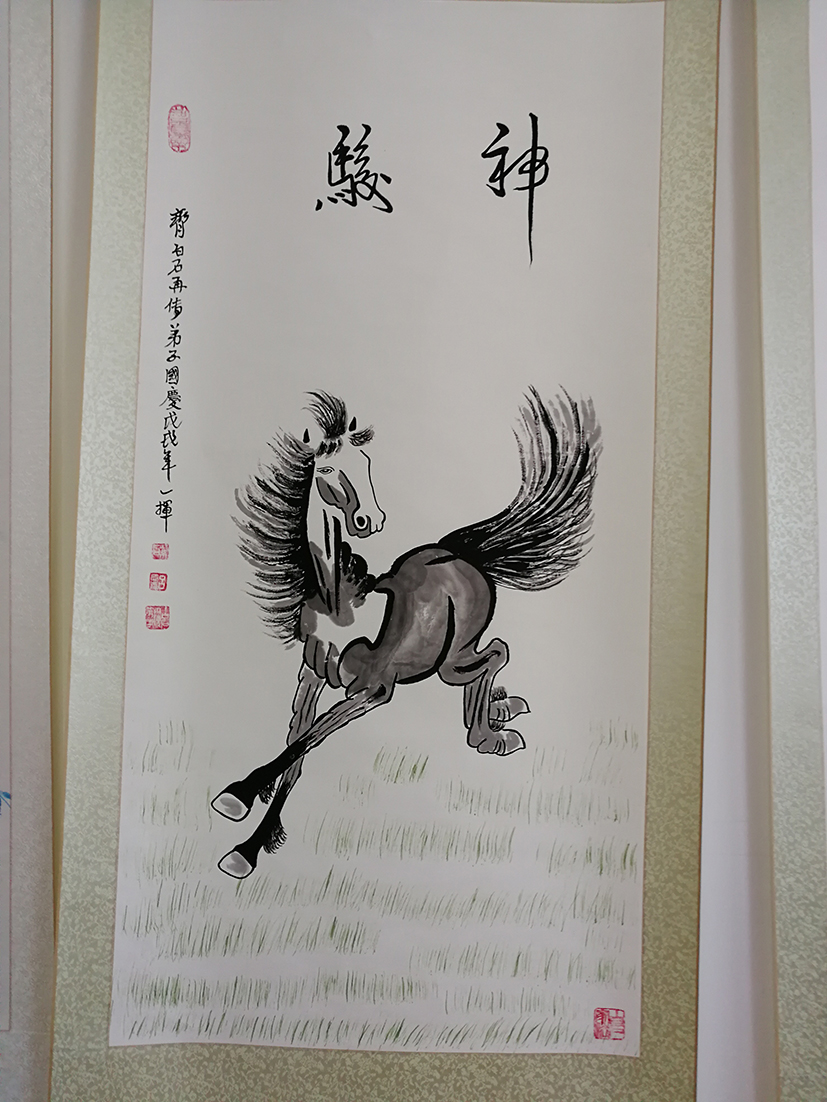 神駿
齊白石再傳弟子國慶戊戌年一揮